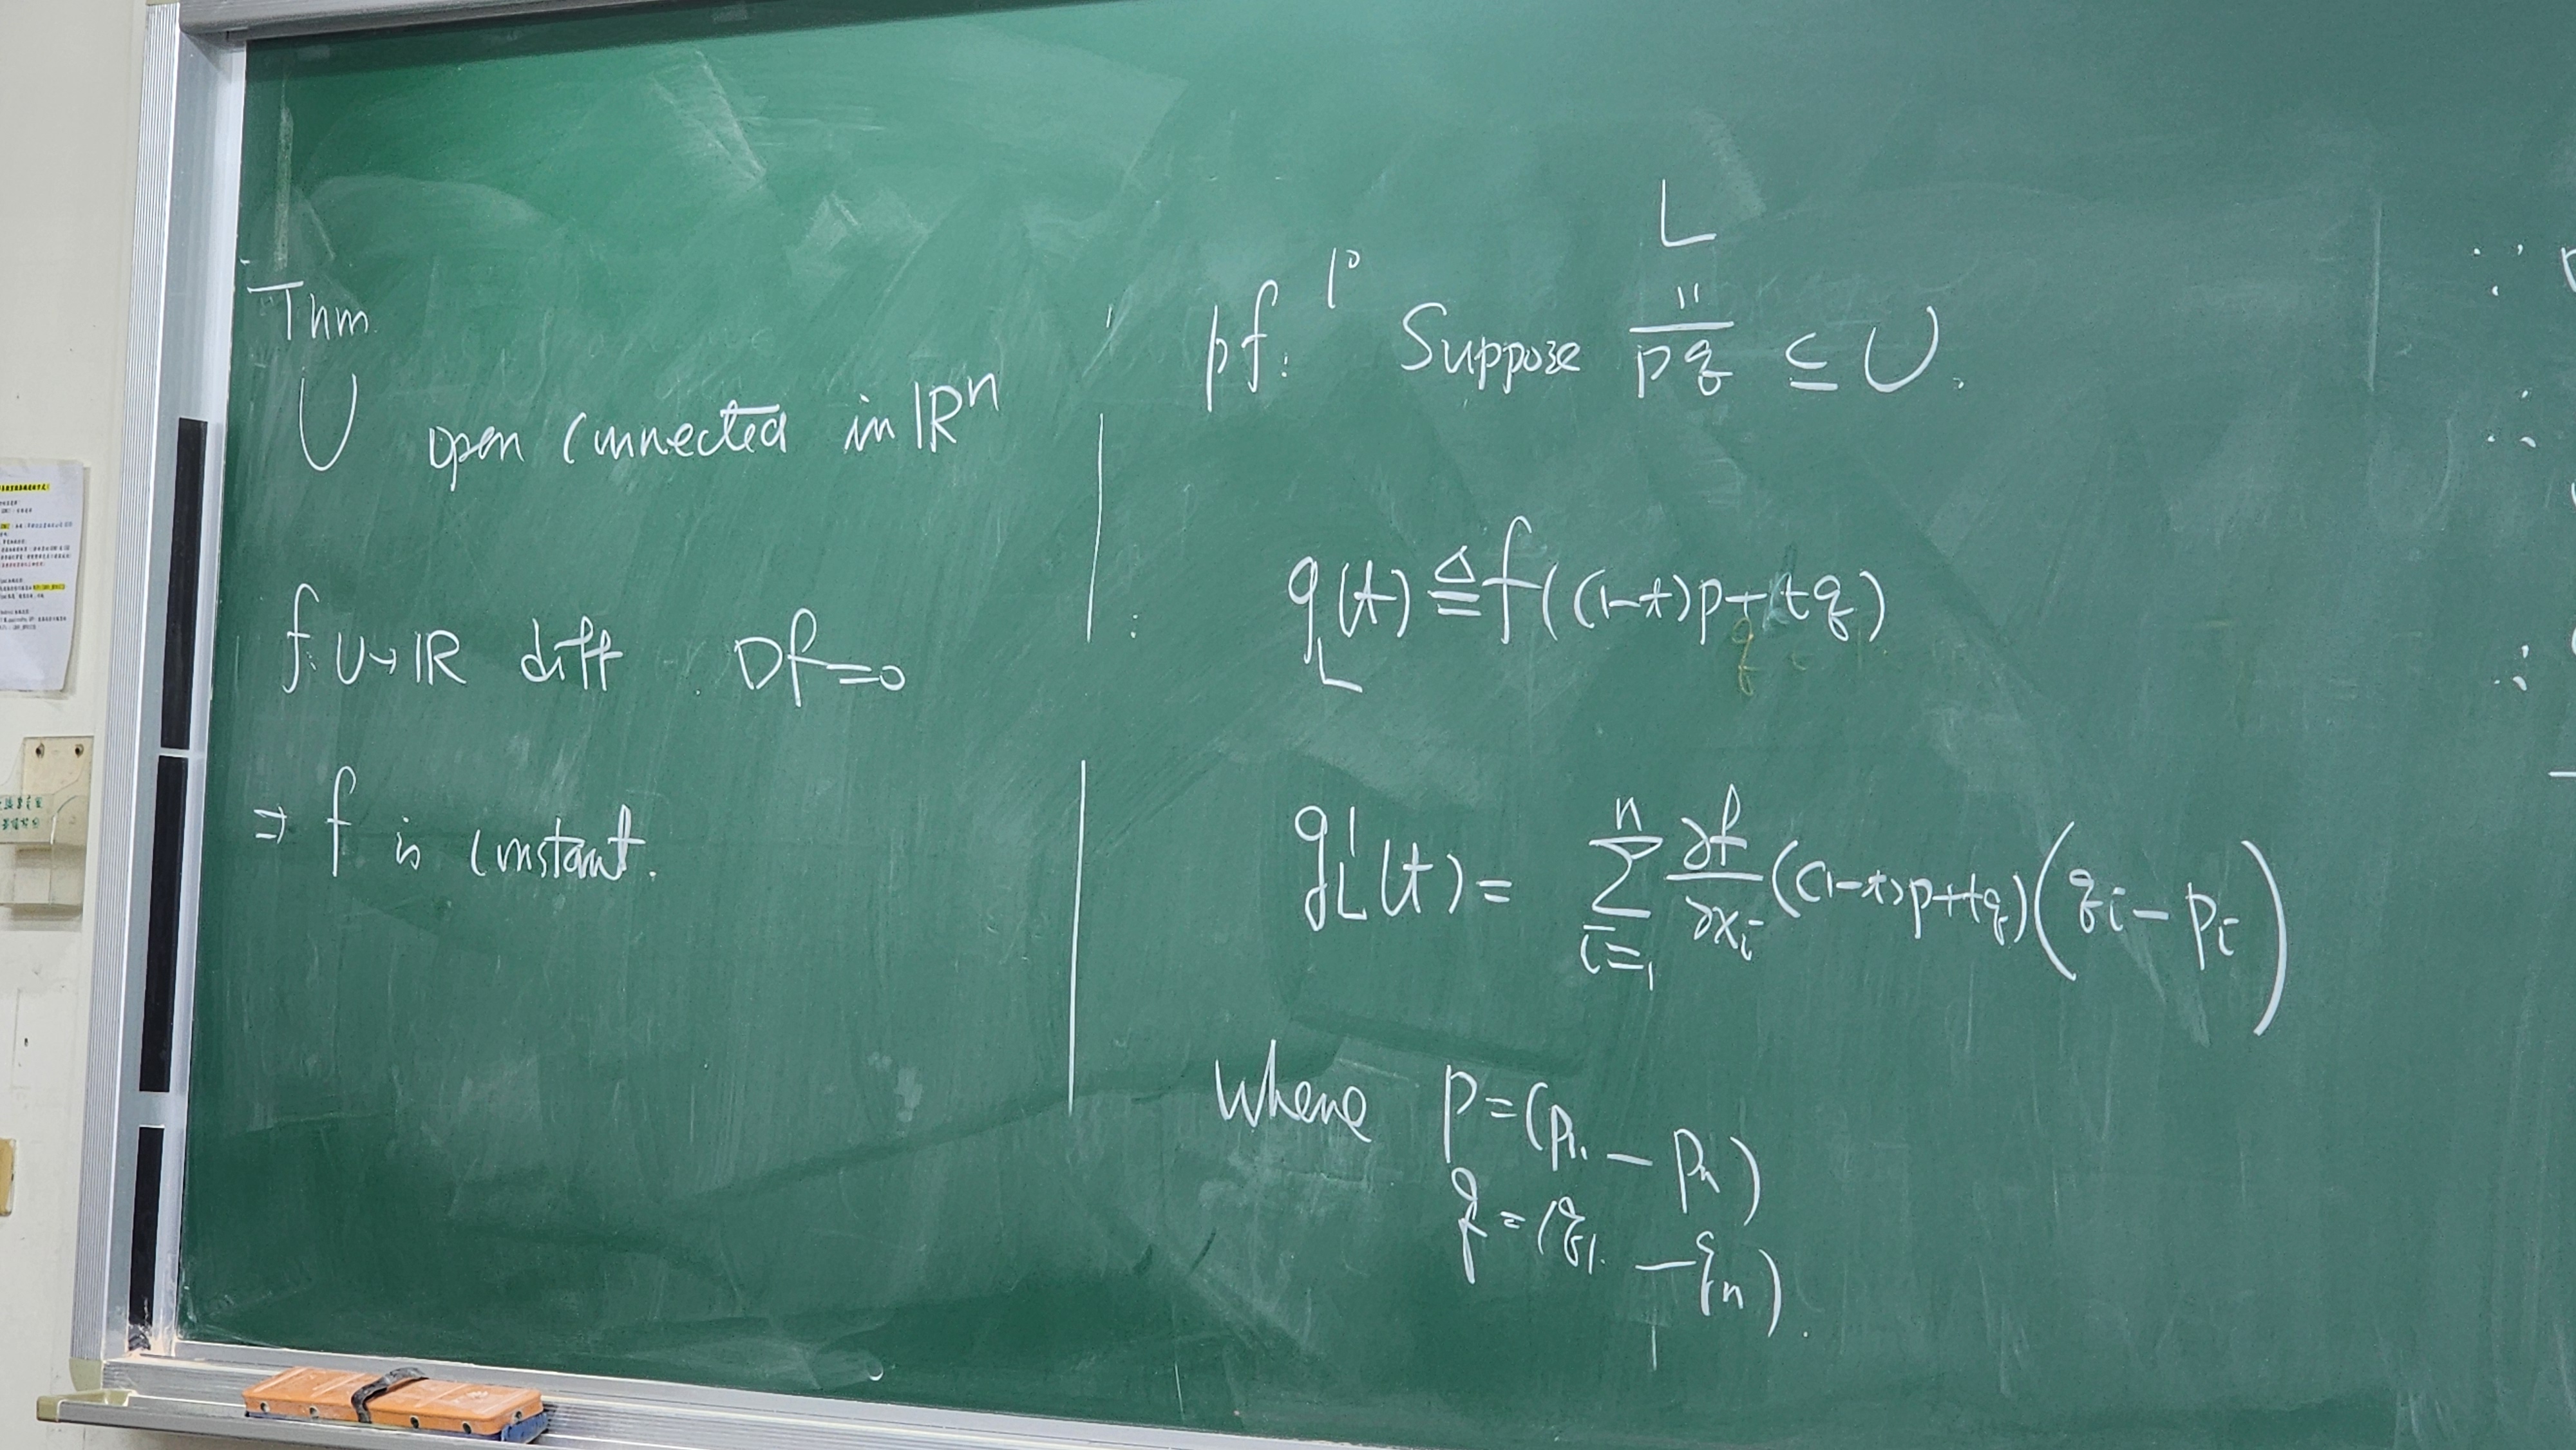 Thm.
U open connected in ℝⁿ
f: U→ℝ diff. Df=0
⇒ f is constant.
pf: 1° Suppose L = \overline{pq} ⊆ U.
g_L(t) ≜ f((1-t)p+tq)
g_L'(t) = \sum_{i=1}^{n} \frac{∂f}{∂x_i}((1-t)p+tq)(q_i - p_i)
where p=(p₁, — pₙ)
q=(q₁, — qₙ).
∵
∴
∴